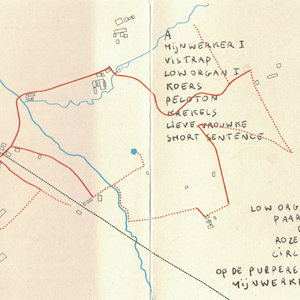 A
MIJNWERKER I
VISTRAP
LOW ORGAN I
KOERS
PELOTON
KREKELS
LIEVE VROUWKE
SHORT SENTENCE
LOW ORG
PAAR
ROZE
CIRC
OP DE PURPERE
MIJNWERKE